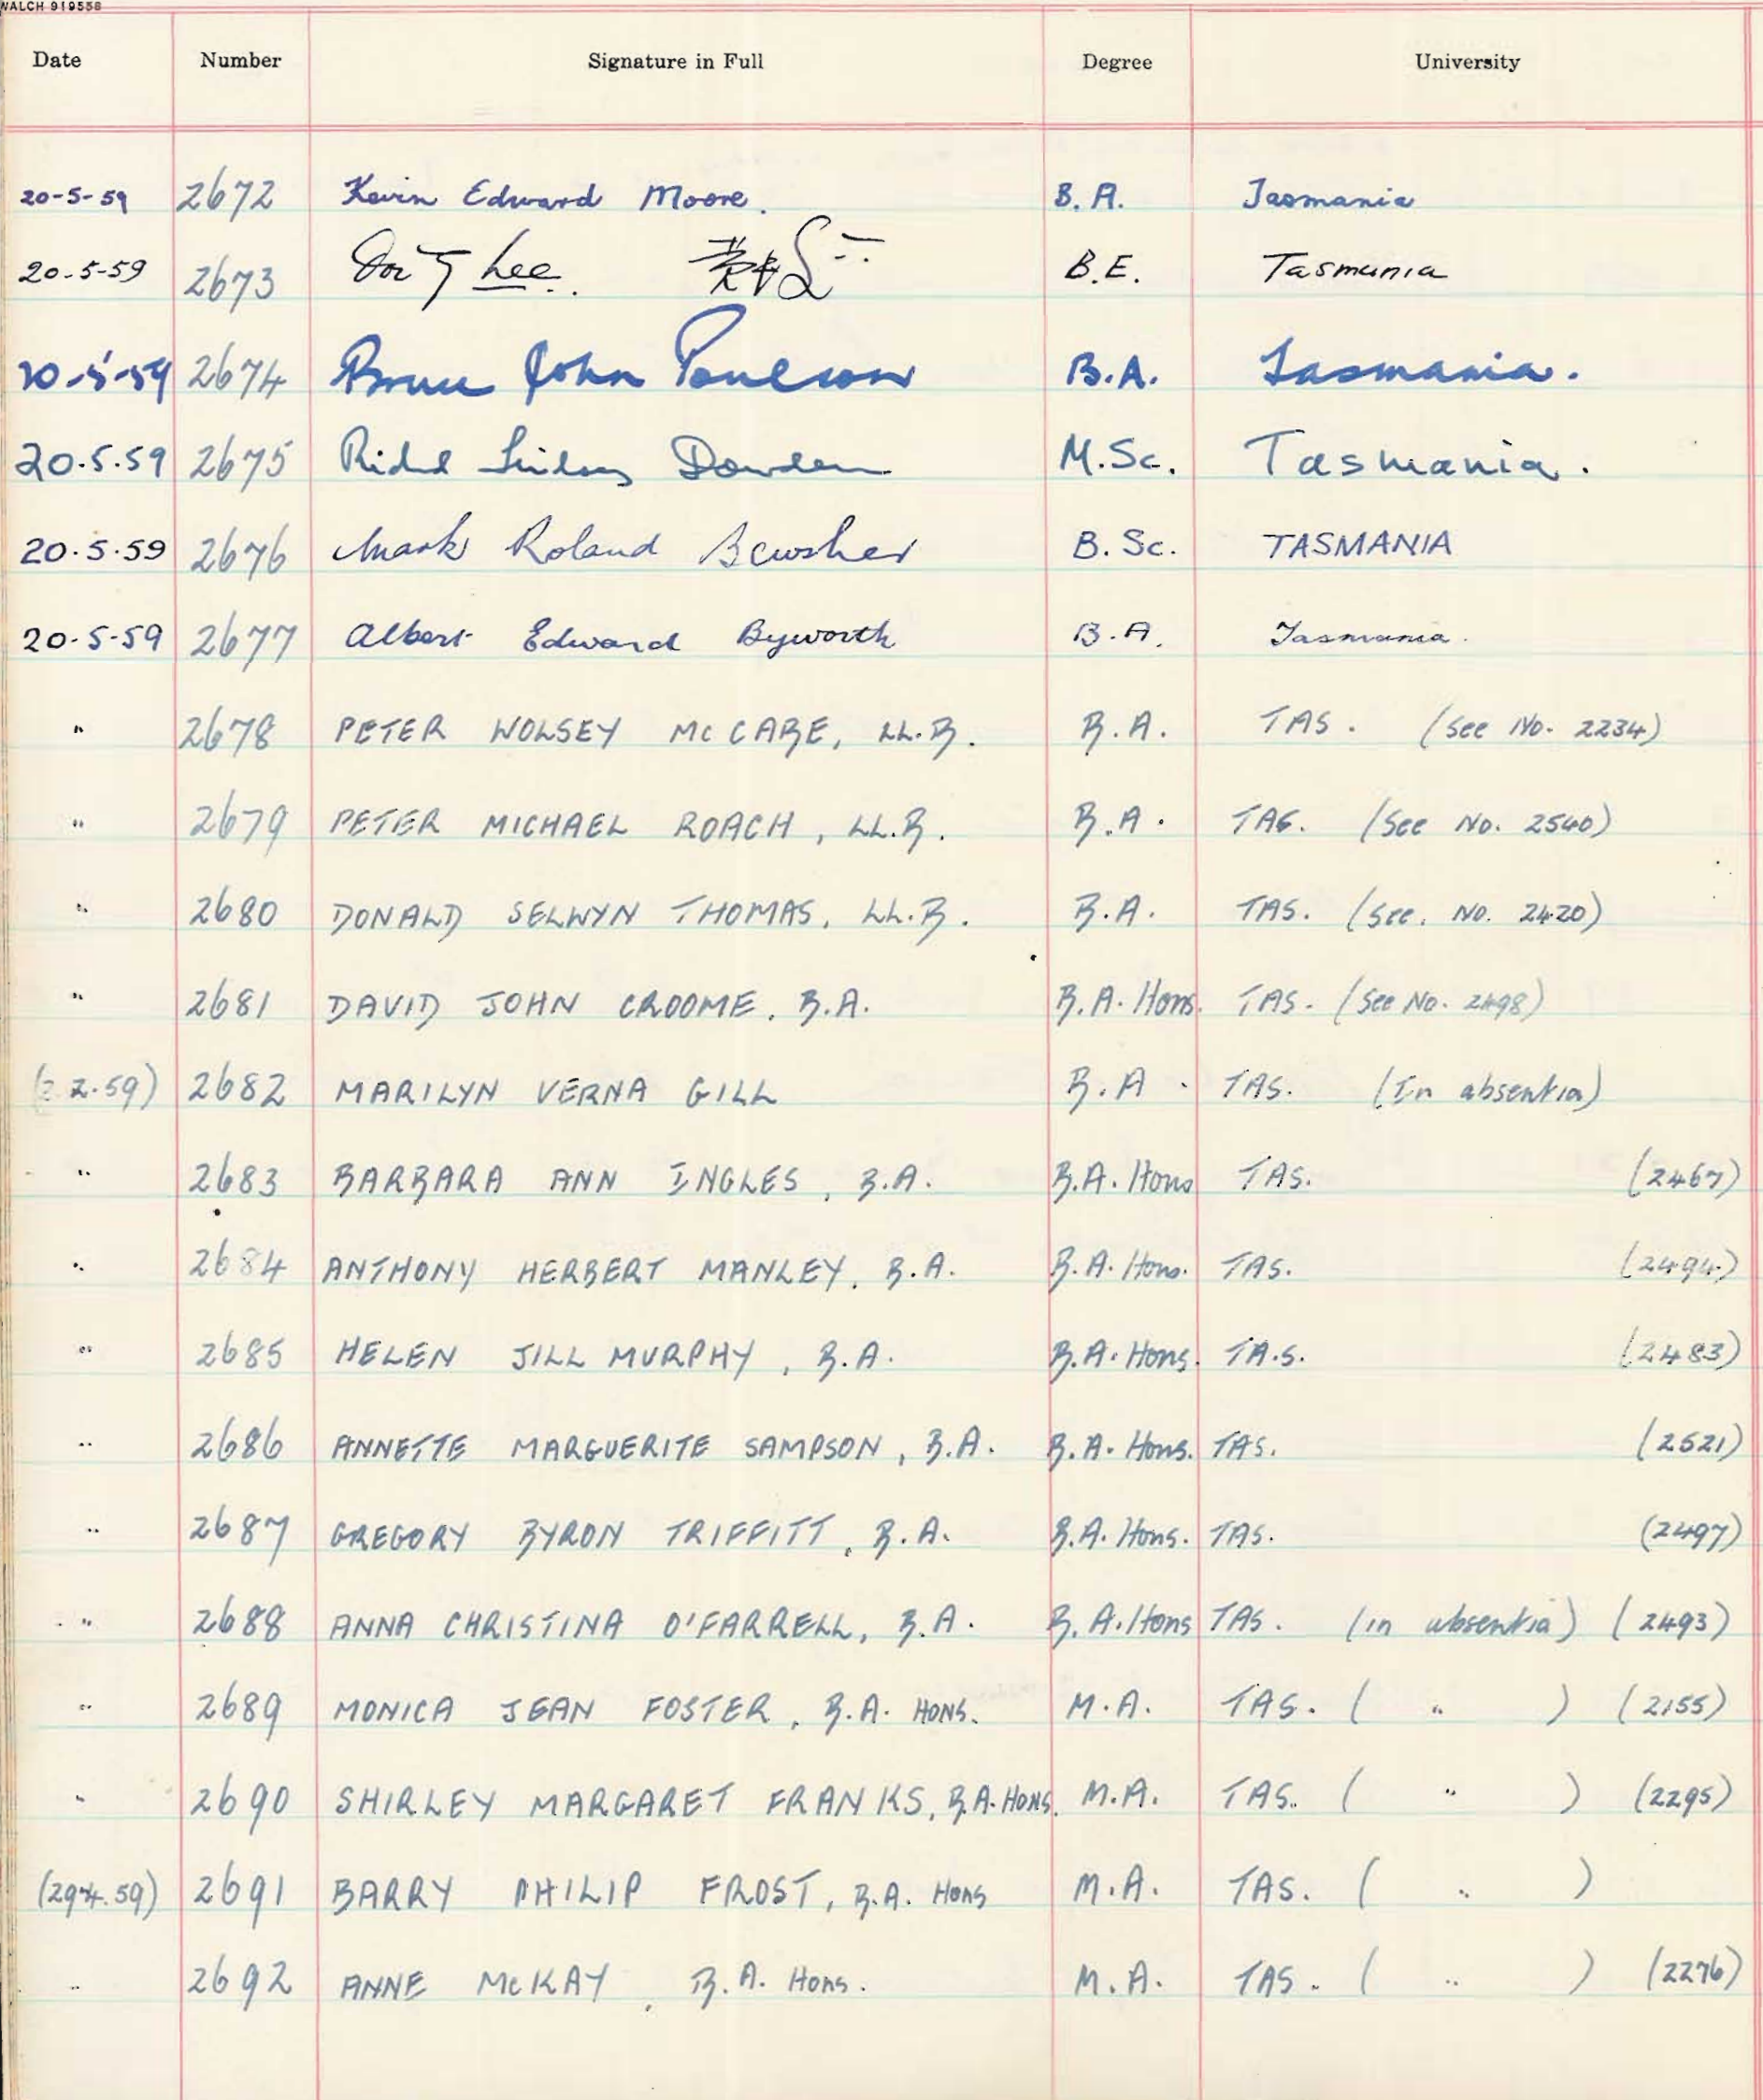 WALCH 919558
Date Number Signature in Full Degree University
20-5-59 2672 Kevin Edward Moore. B.A. Tasmania
20-5-59 2673 Lee. B.E. Tasmania
20-5-59 2674 Bruce John Poulson B.A. Tasmania.
20.5.59 2675 Lindsay Dowden M.Sc. Tasmania.
20.5.59 2676 Mark Roland Bewsher B.Sc. TASMANIA
20-5-59 2677 Albert Edward Byworth B.A. Tasmania.
" 2678 PETER WOLSEY McCABE, LL.B. B.A. TAS. (See No. 2234)
" 2679 PETER MICHAEL ROACH, LL.B. B.A. TAS. (See No. 2540)
" 2680 DONALD SELWYN THOMAS, LL.B. B.A. TAS. (See. No. 2420)
" 2681 DAVID JOHN CROOME, B.A. B.A. Hons. TAS. (See No. 2498)
2682 MARILYN VERNA GILL B.A. TAS. (In absentia)
" 2683 BARBARA ANN INGLES, B.A. B.A. Hons TAS. (2467)
" 2684 ANTHONY HERBERT MANLEY, B.A. B.A. Hons. TAS. (2494)
" 2685 HELEN JILL MURPHY, B.A. B.A. Hons. TA.S. (2483)
" 2686 ANNETTE MARGUERITE SAMPSON, B.A. B.A. Hons. TAS. (2521)
" 2687 GREGORY BYRON TRIFFITT, B.A. B.A. Hons. TAS. (2497)
" 2688 ANNA CHRISTINA O'FARRELL, B.A. B.A. Hons TAS. (in absentia) (2493)
" 2689 MONICA JEAN FOSTER, B.A. HONS. M.A. TAS. ( " ) (2155)
" 2690 SHIRLEY MARGARET FRANKS, B.A. HONS. M.A. TAS. ( " ) (2295)
(29.4.59) 2691 BARRY PHILIP FROST, B.A. Hons M.A. TAS. ( " )
" 2692 ANNE McKAY, B.A. Hons. M.A. TAS. ( " ) (2276)